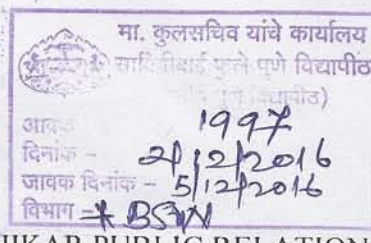 मा. कुलसचिव यांचे कार्यालय
सावित्रीबाई फुले पुणे विद्यापीठ
विद्यापीठ)
1997
दिनांक - 2/12/2016
जावक दिनांक - 5/12/2016
विभाग -
PUBLIC RELATION